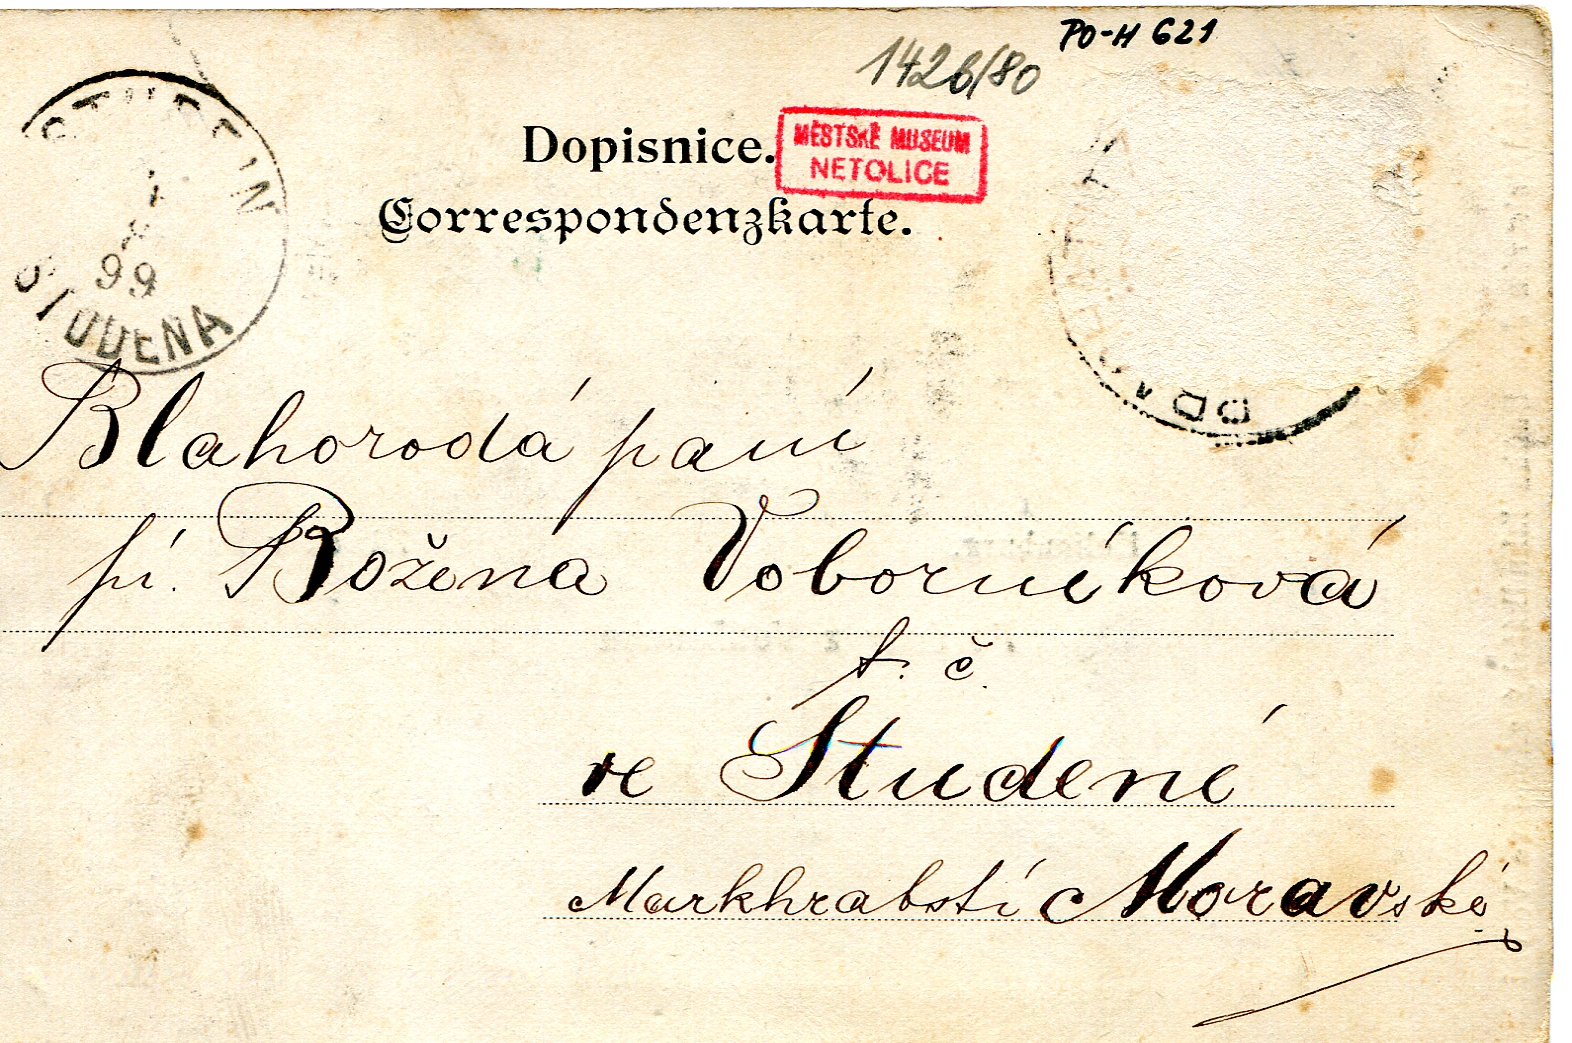 PO-H 621
1426/80
Dopisnice.
MĚSTSKÉ MUSEUM
NETOLICE
Correspondenzkarte.
99
STUDENA
Blahorodá paní
pí. Božena Voborníková
t. č.
ve Studené
Markhrabství Moravské